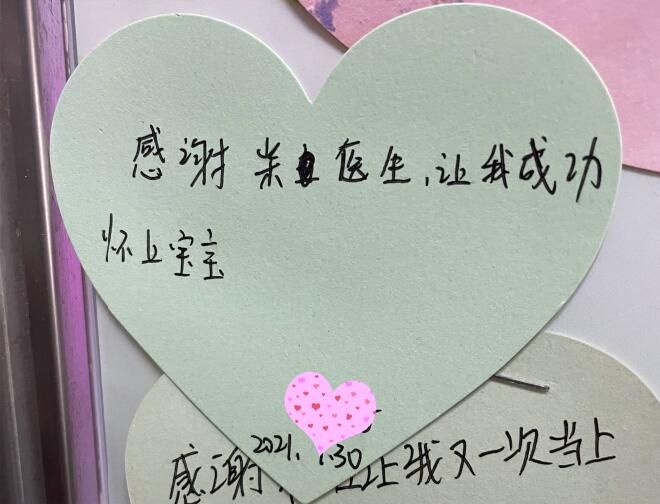 感谢朱医生,让我成功
怀上宝宝
2021. .30
感谢 让我又一次当上